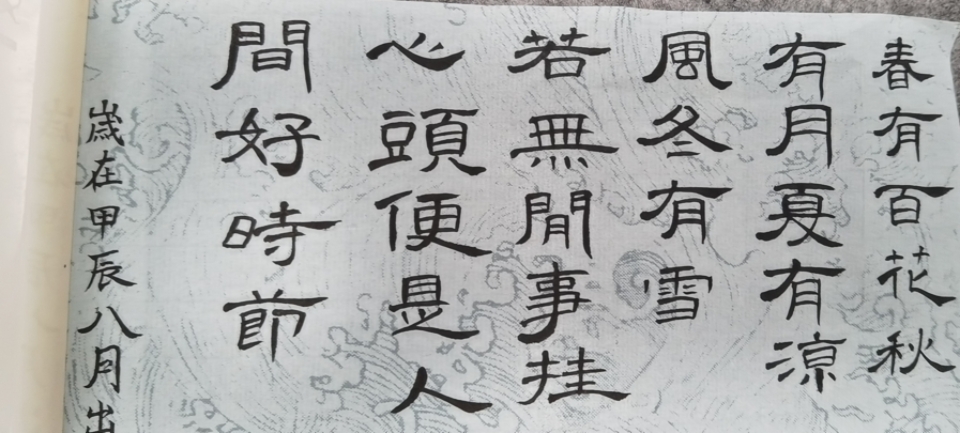 春有百花秋
有月夏有涼
風冬有雪
若無閒事挂
心頭便是人
間好時節
歲在甲辰八月出